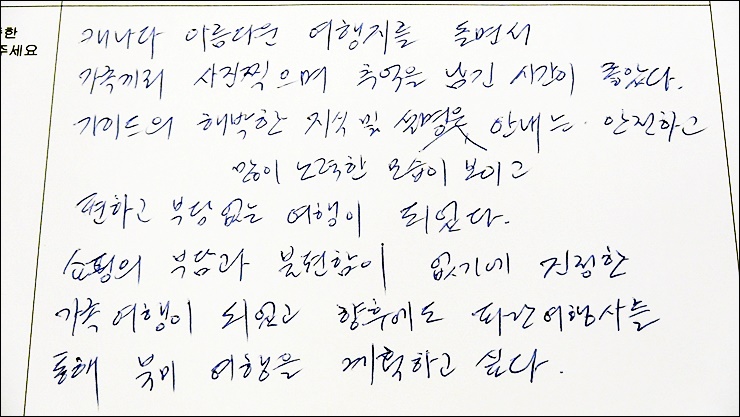 한
주세요
캐나다 아름다운 여행지를 돌면서
가족끼리 사진찍으며 추억을 남긴 시간이 좋았다.
가이드의 해박한 지식 및 설명은, 안내는 안전하고
많이 노력한 모습이 보이고
편하고 부담없는 여행이 되었다.
쇼핑의 부담과 불편함이 없기에 진정한
가족여행이 되었고 향후에도 파란여행사를
통해 북미 여행을 계획하고 싶다.